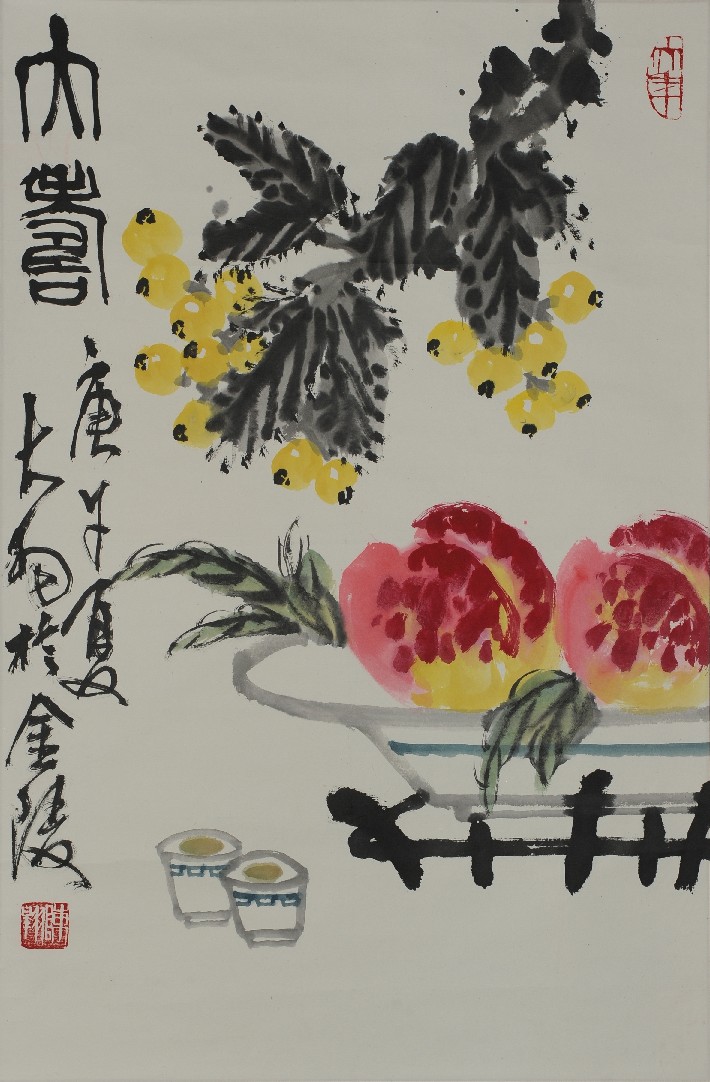 大壽
庚午夏
大羽於金陵